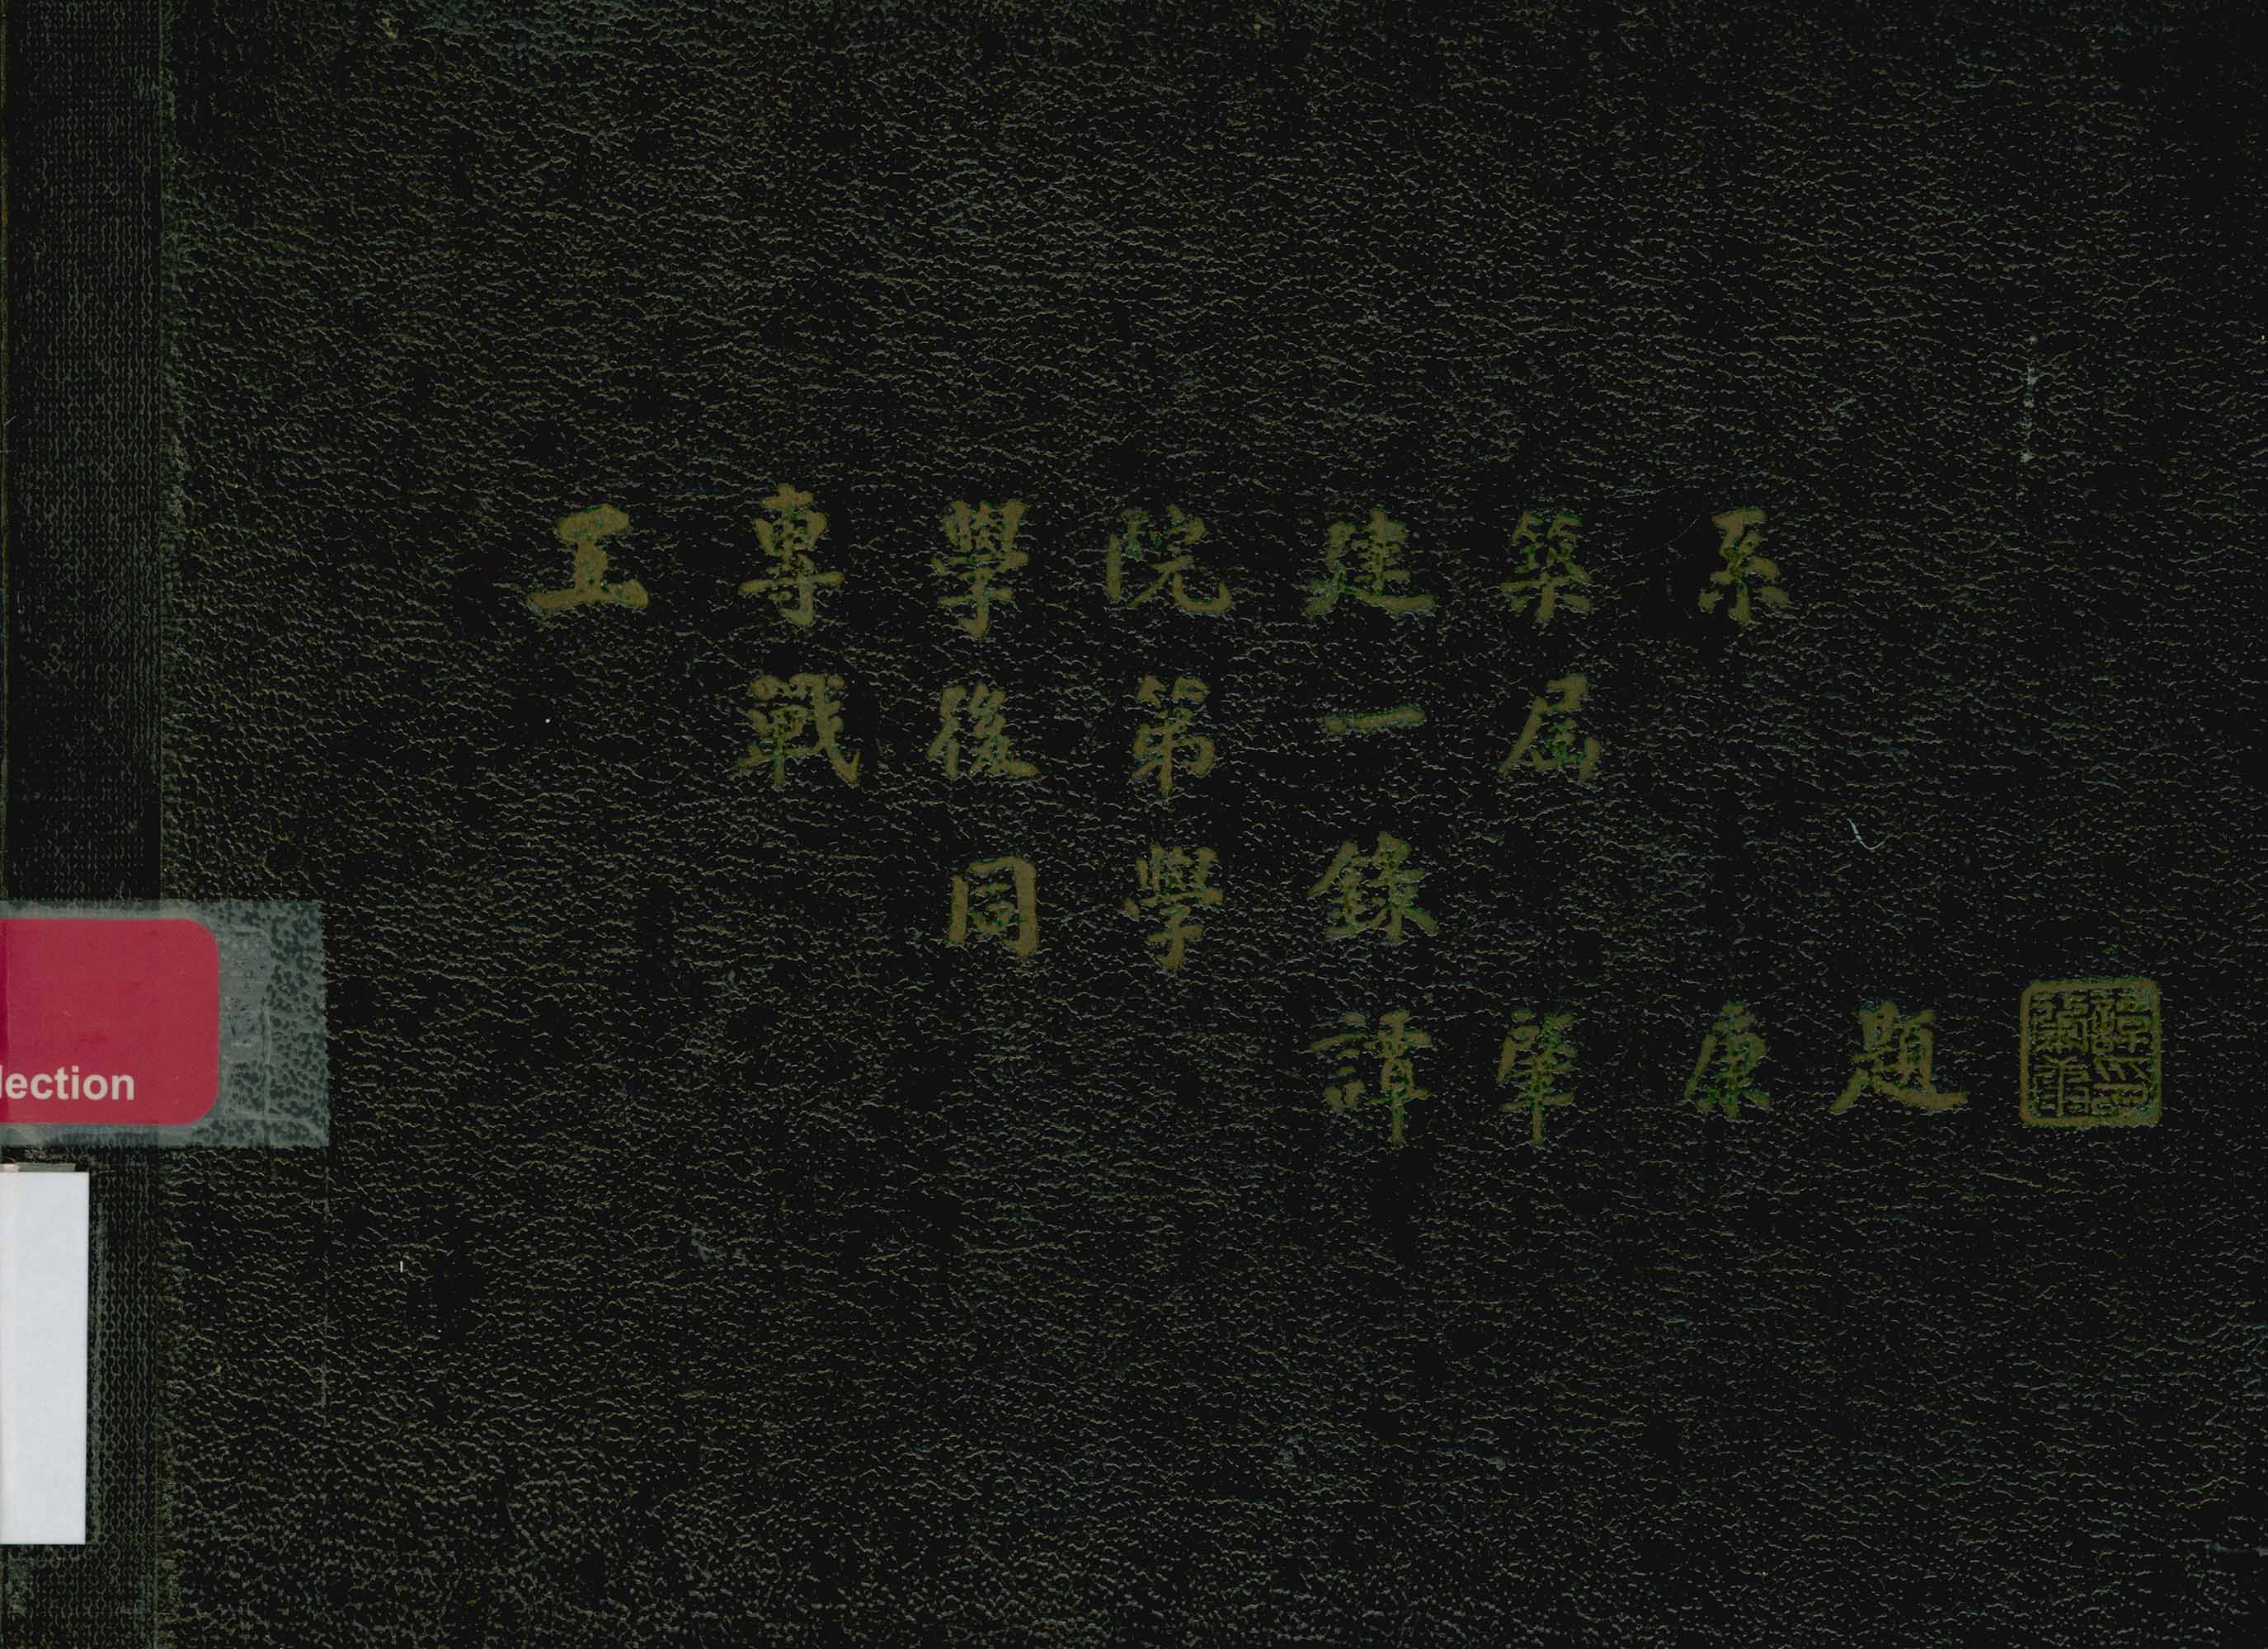 工專學院建築系
戰後第一屆
同學錄
譚肇康題
lection